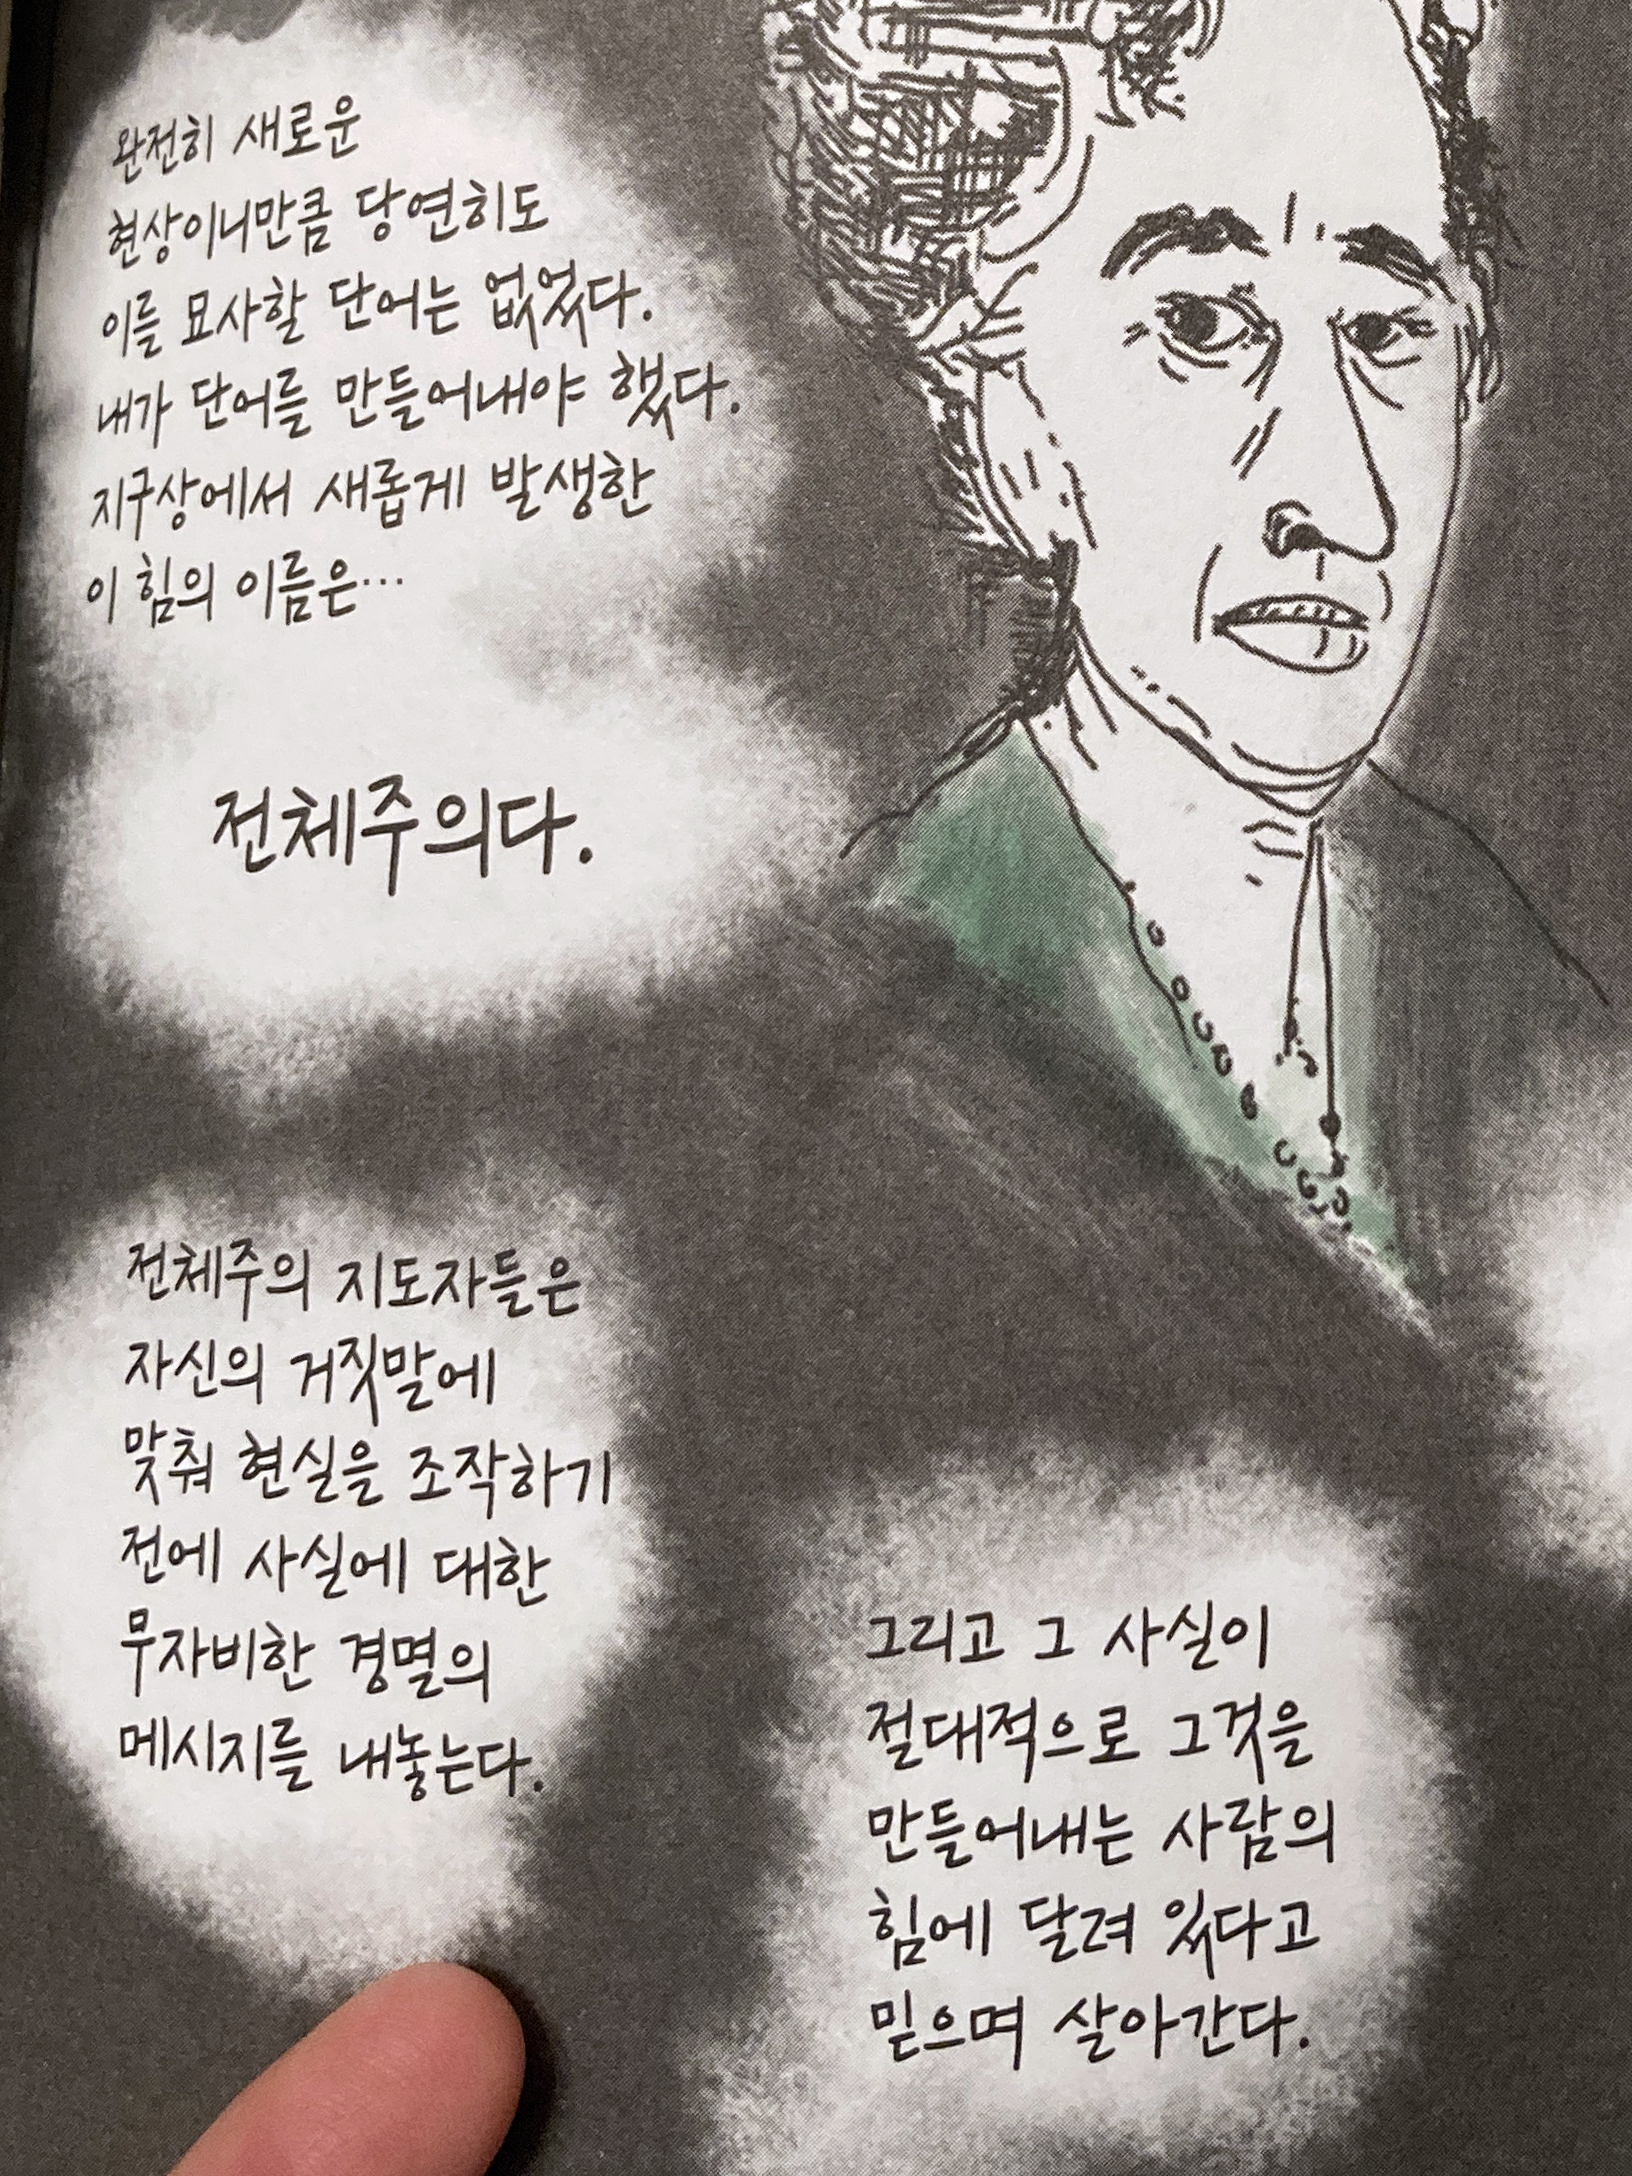 완전히 새로운
현상이니만큼 당연히도
이를 묘사할 단어는 없었다.
내가 단어를 만들어내야 했다.
지구상에서 새롭게 발생한
이 힘의 이름은…
전체주의다.
전체주의 지도자들은
자신의 거짓말에
맞춰 현실을 조작하기
전에 사실에 대한
무자비한 경멸의
메시지를 내놓는다.
그리고 그 사실이
절대적으로 그것을
만들어내는 사람의
힘에 달려 있다고
믿으며 살아간다.